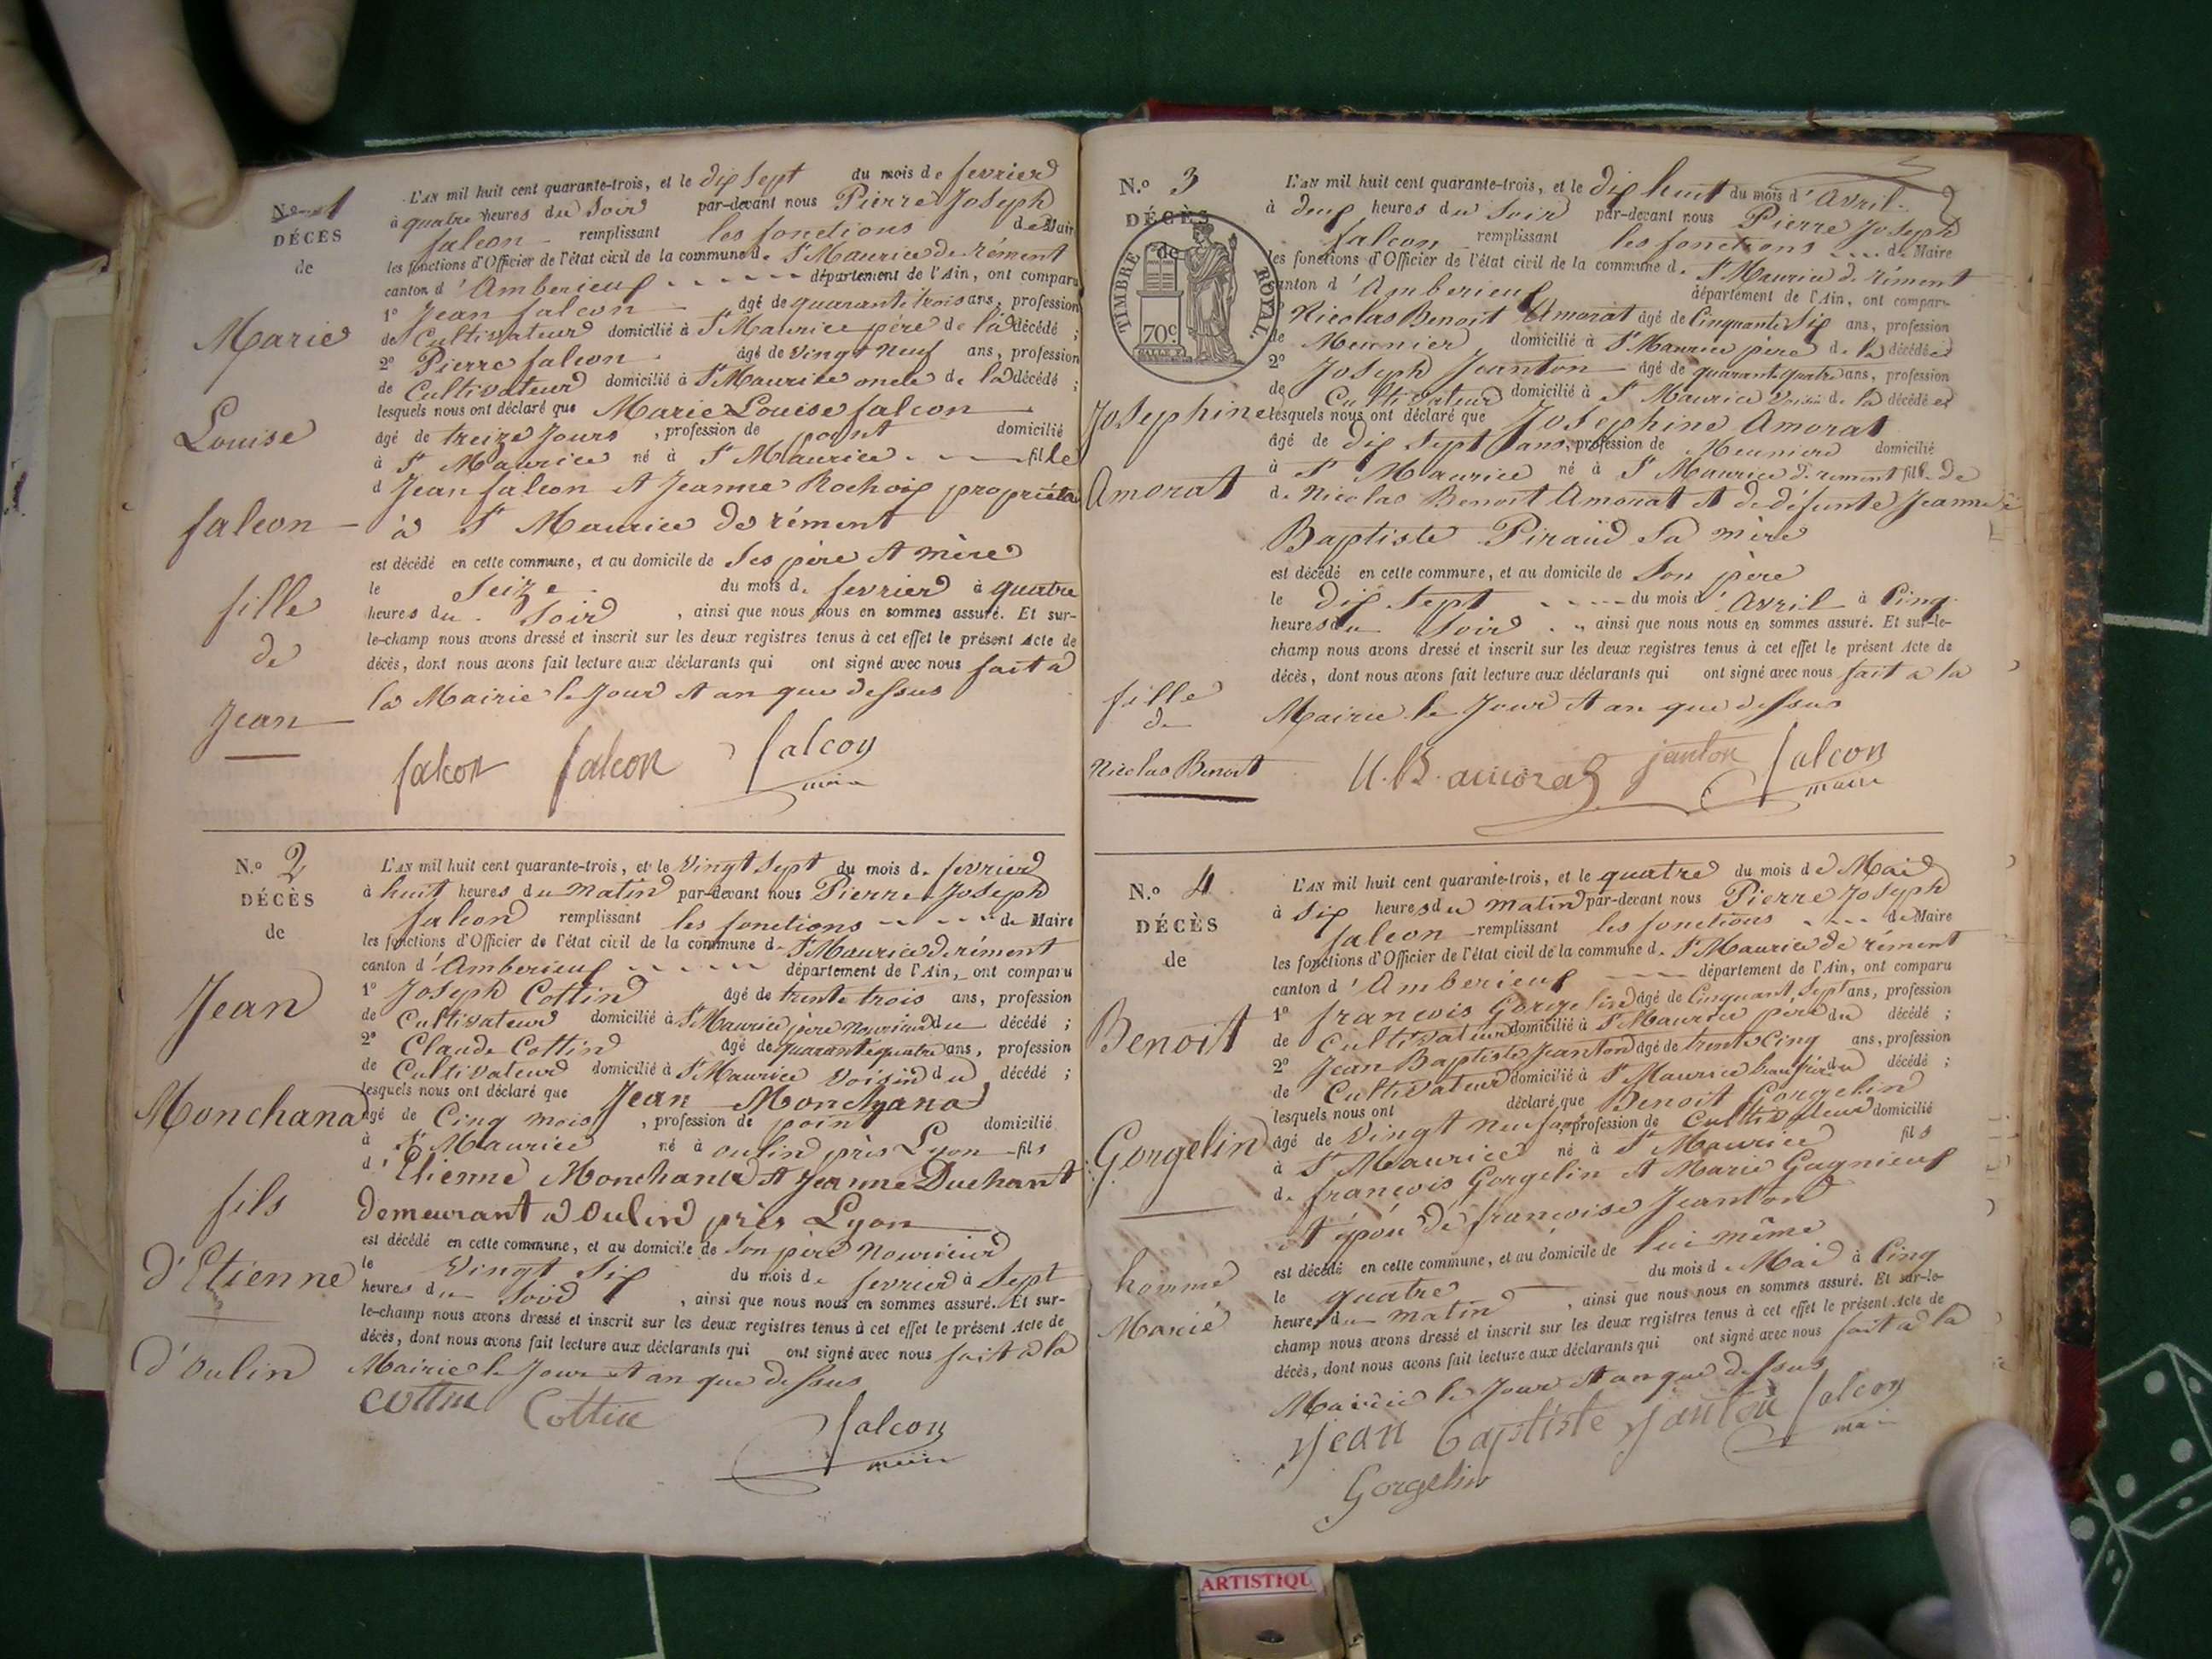 N.o 1
DÉCÈS
de
Marie
Louise
falcon
fille
de
Jean
L'AN mil huit cent quarante-trois, et le dix sept du mois de fevrier
à quatre heures du Soir par-devant nous Pierre Joseph
falcon remplissant les fonctions de Maire
les fonctions d'Officier de l'état civil de la commune d. St Maurice de rément
canton d'Amberieux département de l'Ain, ont comparu
1o Jean falcon âgé de quarante trois ans, profession
de Cultivateur domicilié à St Maurice père de la décédé ;
2o Pierre falcon âgé de Vingt Neuf ans, profession
de Cultivateur domicilié à St Maurice oncle de la décédé ;
lesquels nous ont déclaré que Marie Louise falcon
âgé de treize Jours , profession de point domicilié
à St Maurice né à St Maurice fille
d Jean falcon et Jeanne Rochoix propriétai
à St Maurice de rément
est décédé en cette commune, et au domicile de Ses père et mère
le Seize du mois d. fevrier à quatre
heures du Soir , ainsi que nous nous en sommes assuré. Et sur-
le-champ nous avons dressé et inscrit sur les deux registres tenus à cet effet le présent Acte de
décès, dont nous avons fait lecture aux déclarants qui ont signé avec nous fait à
la Mairie le Jour et an que dessus
falcon falcon falcon
maire
N.o 2
DÉCÈS
de
Jean
Monchana
fils
d'Etienne
d'oulin
L'AN mil huit cent quarante-trois, et le Vingt Sept du mois d. fevrier
à huit heures du matin par-devant nous Pierre Joseph
falcon remplissant les fonctions de Maire
les fonctions d'Officier de l'état civil de la commune d. St Maurice de rément
canton d'Amberieux département de l'Ain, ont comparu
1o Joseph Cottin âgé de trente trois ans, profession
de Cultivateur domicilié à St Maurice père Nourricier du décédé ;
2o Claude Cottin âgé de quarante quatre ans, profession
de Cultivateur domicilié à St Maurice Voisin du décédé ;
lesquels nous ont déclaré que Jean Monchana
âgé de Cinq mois , profession de point domicilié
à St Maurice né à oulin près Lyon fils
d'Etienne Monchana et Jeanne Duchant
demeurant à Oulin près Lyon
est décédé en cette commune, et au domicile de Son père Nouricier
le Vingt Six du mois d. fevrier à Sept
heures du Soir , ainsi que nous nous en sommes assuré. Et sur-
le-champ nous avons dressé et inscrit sur les deux registres tenus à cet effet le présent Acte de
décès, dont nous avons fait lecture aux déclarants qui ont signé avec nous fait à la
Mairie le Jour et an que dessus
cottin Cottin
falcon
maire
N.o 3
DÉCÈS
de
TIMBRE ROYAL
70c
Josephine
Amorat
fille
de
Nicolas Benoit
L'AN mil huit cent quarante-trois, et le dix huit du mois d'Avril
à deux heures du Soir par-devant nous Pierre Joseph
falcon remplissant les fonctions de Maire
les fonctions d'Officier de l'état civil de la commune d. St Maurice de rément
canton d'Amberieux département de l'Ain, ont comparu
Nicolas Benoit Amorat âgé de Cinquante Six ans, profession
de Meunier domicilié à St Maurice père de la décédée
2o Joseph Jeanton âgé de quarante quatre ans, profession
de Cultivateur domicilié à St Maurice Voisin de la décédée
lesquels nous ont déclaré que Josephine Amorat
âgé de dix Sept ans, profession de Meunier domicilié
à St Maurice né à St Maurice de rement fille de
de Nicolas Benoit Amorat et de défunte Jeanne
Baptiste Piraud Sa mère
est décédé en cette commune, et au domicile de Son père
le dix Sept du mois d'Avril à Cinq
heures du Soir , ainsi que nous nous en sommes assuré. Et sur-le-
champ nous avons dressé et inscrit sur les deux registres tenus à cet effet le présent Acte de
décès, dont nous avons fait lecture aux déclarants qui ont signé avec nous fait à la
Mairie le Jour et an que dessus
N. B. amorat janton falcon
maire
N.o 4
DÉCÈS
de
Benoit
Gorgelin
homme
Marié
L'AN mil huit cent quarante-trois, et le quatre du mois de Mai
à Six heures du matin par-devant nous Pierre Joseph
falcon remplissant les fonctions de Maire
les fonctions d'Officier de l'état civil de la commune d. St Maurice de rément
canton d'Amberieux département de l'Ain, ont comparu
1o francois Gorgelin âgé de Cinquant Sept ans, profession
de Cultivateur domicilié à St Maurice père du décédé ;
2o Jean Baptiste Jeanton âgé de trente Cinq ans, profession
de Cultivateur domicilié à St Maurice beau frère du décédé ;
lesquels nous ont déclaré que Benoit Gorgelin
âgé de Vingt neuf ans, profession de Cultivateur domicilié
à St Maurice né à St Maurice fils
d. françois Gorgelin et Marie Gagnieux
et épou de francoise Jeanton
est décédé en cette commune, et au domicile de lui même
le quatre du mois d. Mai à Cinq
heures du matin , ainsi que nous nous en sommes assuré. Et sur-le-
champ nous avons dressé et inscrit sur les deux registres tenus à cet effet le présent Acte de
décès, dont nous avons fait lecture aux déclarants qui ont signé avec nous fait à la
Mairie le Jour et an que dessus
Jean baptiste janton falcon
maire
Gorgelin
ARTISTIQU